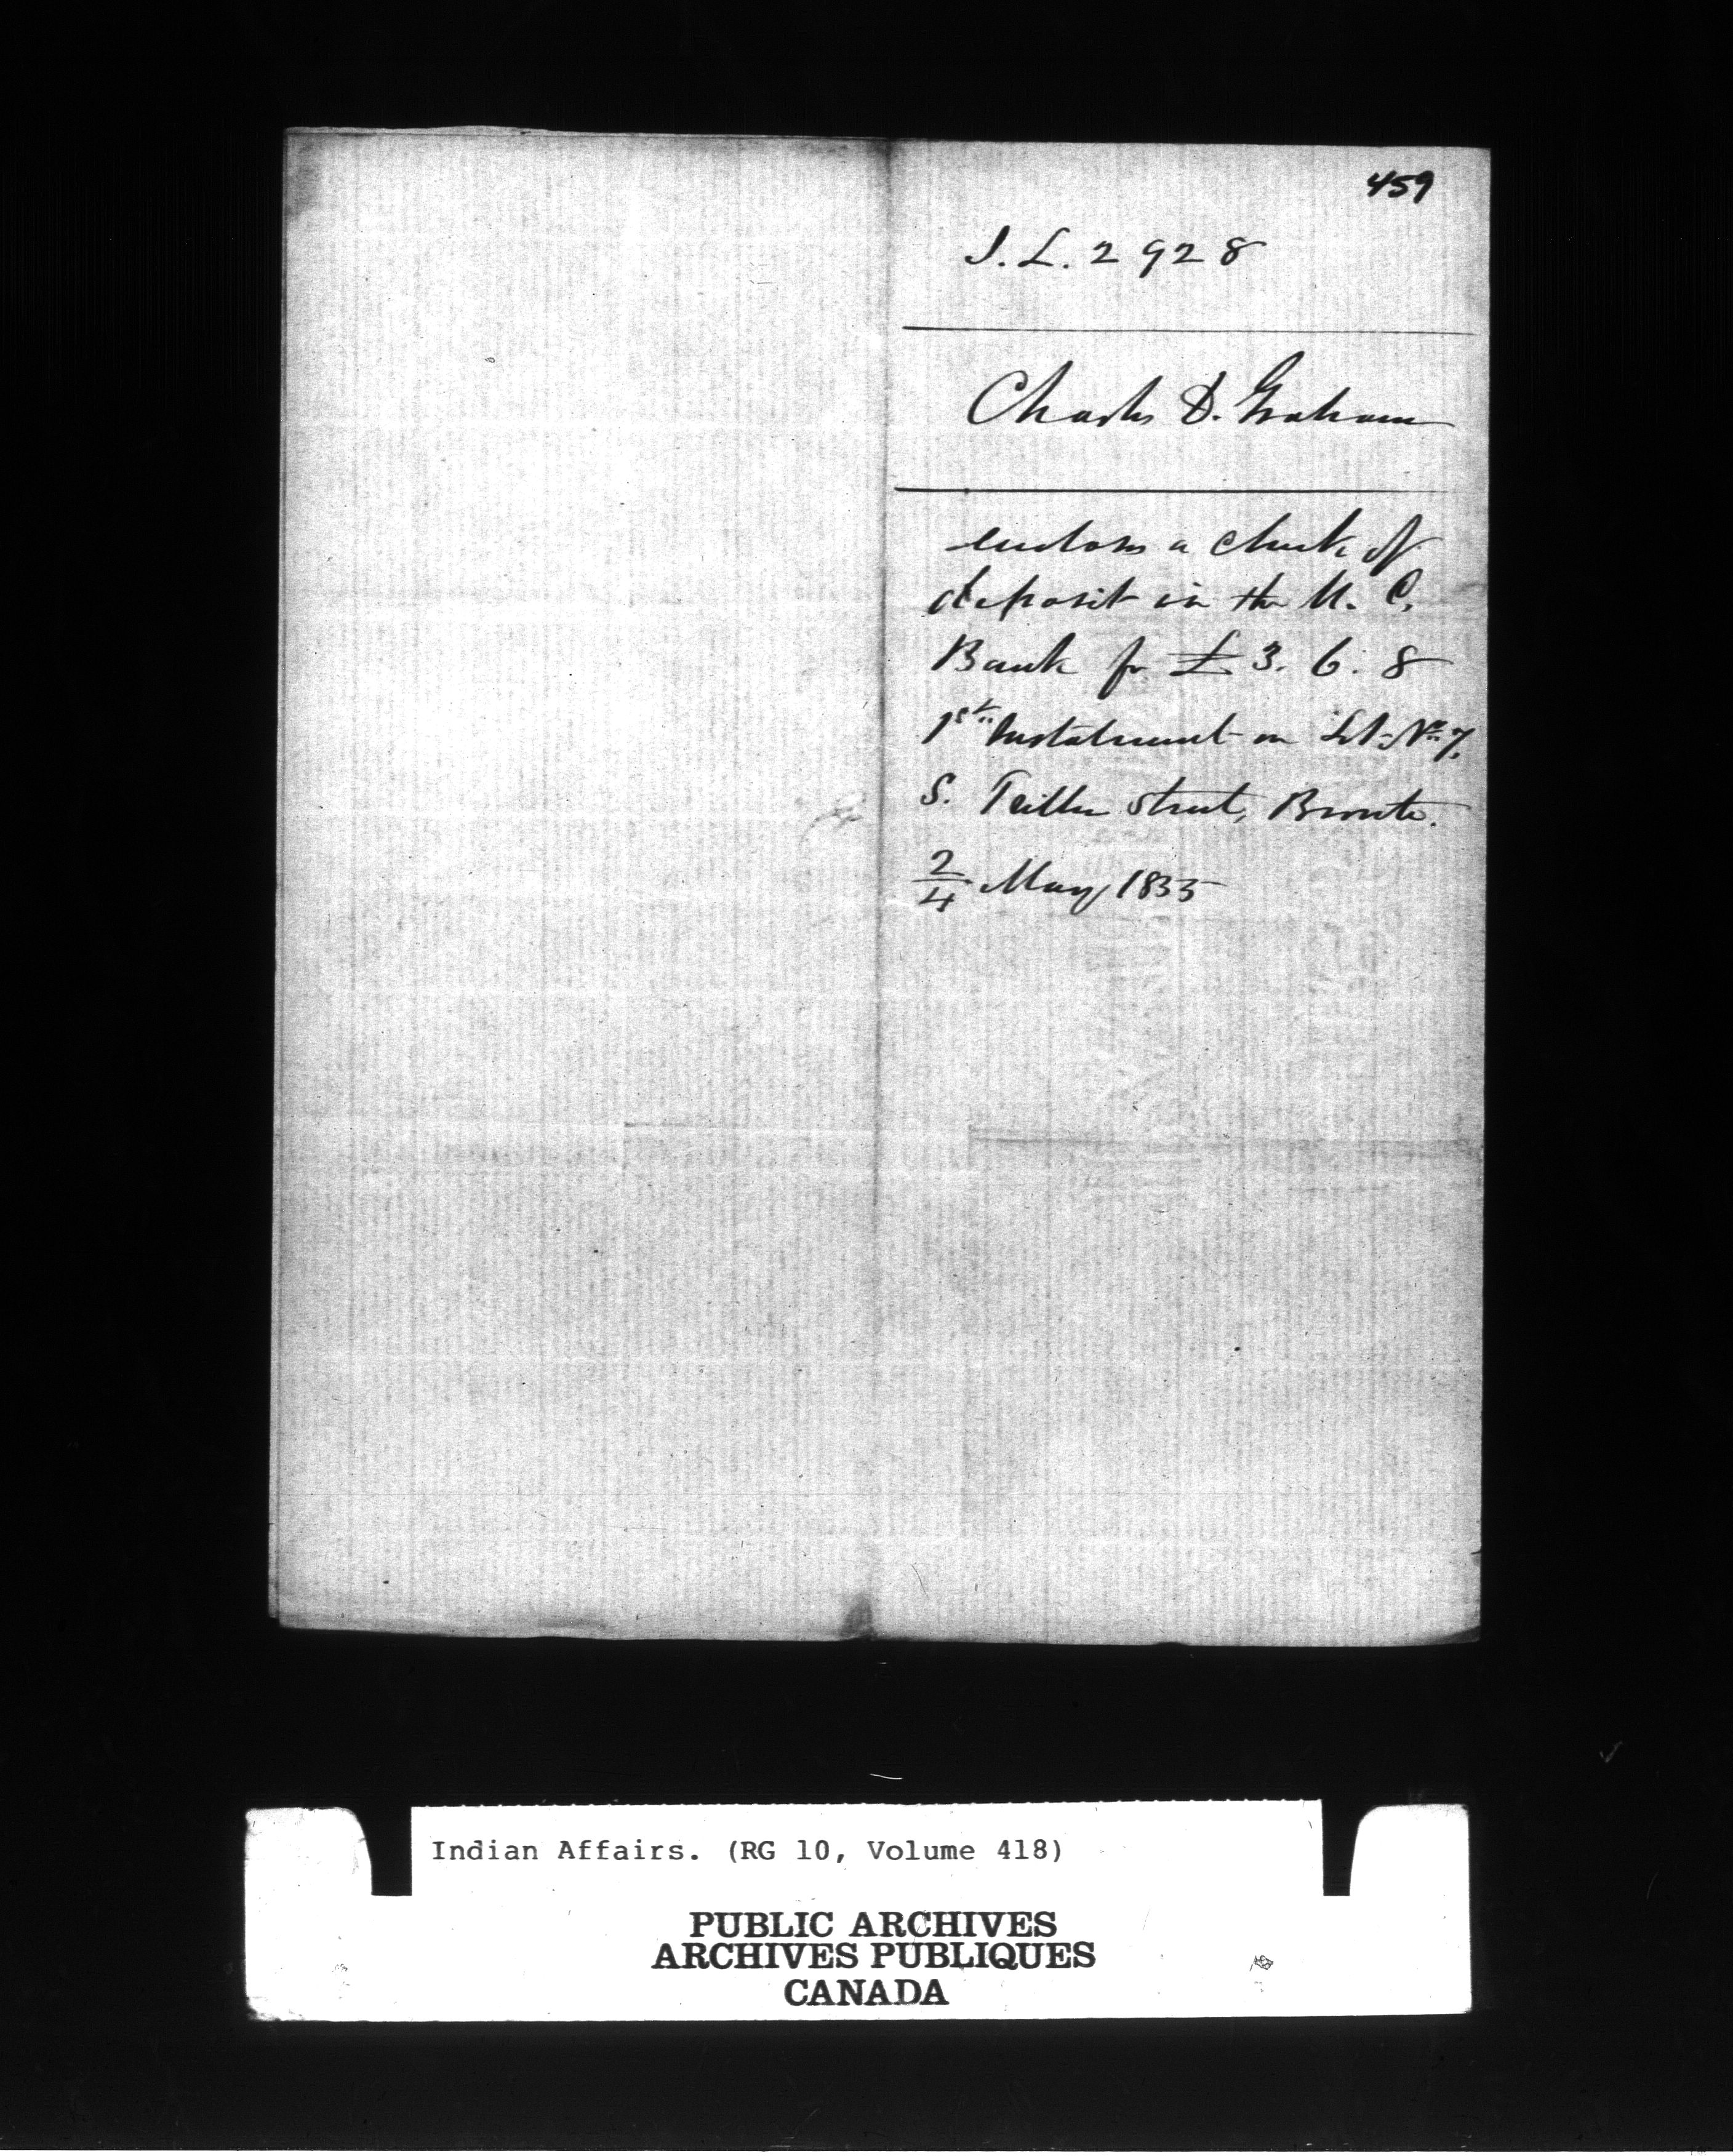 459
I. L. 2928
Charles D. Graham
encloses a check of
deposit in the U. C.
Bank for £ 3. 6. 8
1st Instalment on Lot No. 7,
S. Triller Street, Bronte.
2/4 May 1835
Indian Affairs. (RG 10, Volume 418)
PUBLIC ARCHIVES
ARCHIVES PUBLIQUES
CANADA